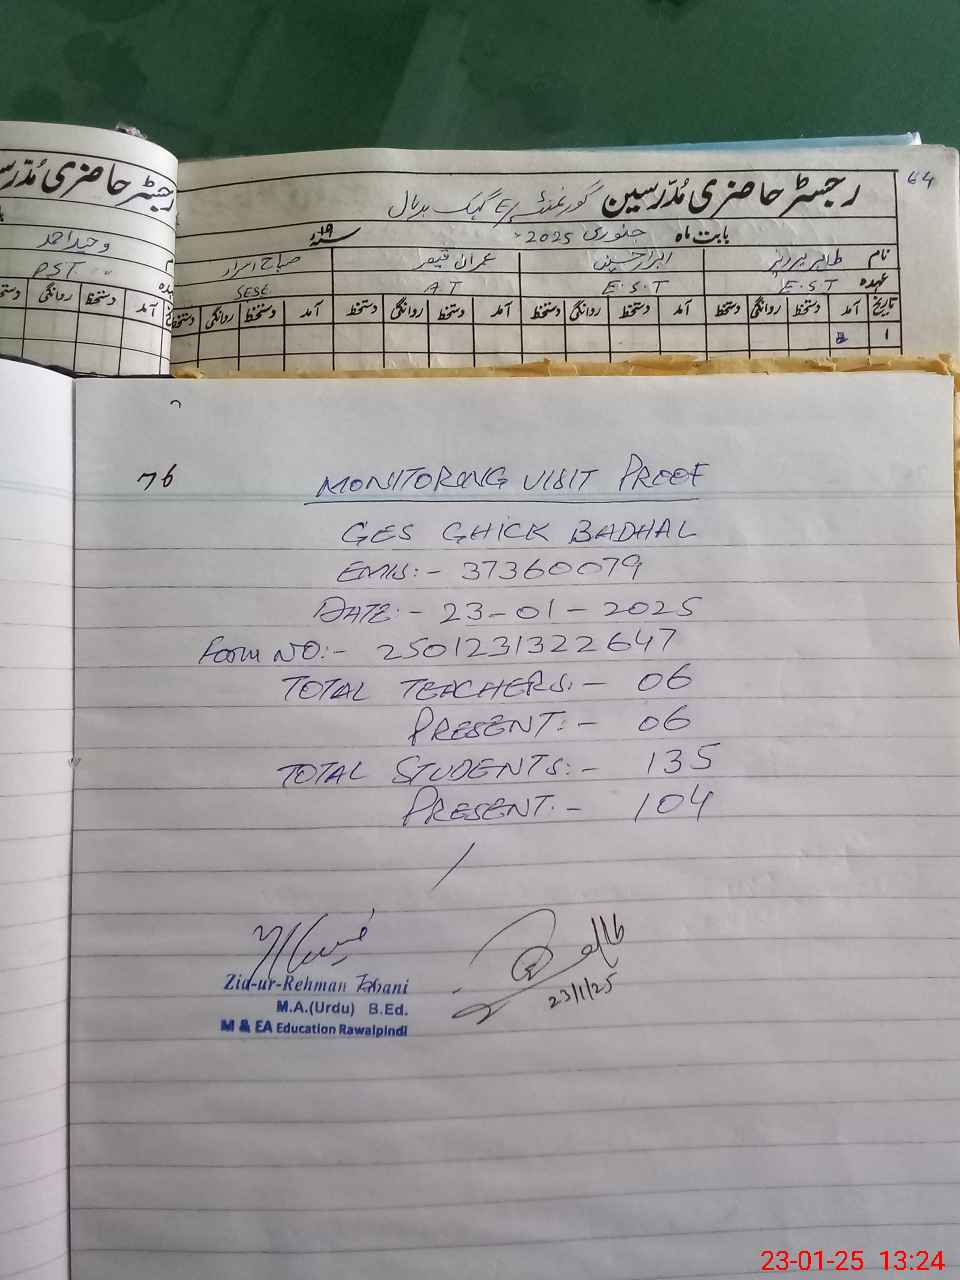 رجسٹر حاضری مُدّرسین گورنمنٹ
64
بابت ماہ جنوری 2025ء سنہ ۱۹ء
نام طاہر پرویز ابرار حسین عمران قیصر صباح اسرار
عہدہ E.S.T E.S.T A T SESE
تاریخ آمد دستخط روانگی دستخط آمد دستخط روانگی دستخط آمد دستخط روانگی دستخط آمد دستخط روانگی دستخط
۱
رجسٹر حاضری مُدّرس
وحید احمد
PST
آمد دستخط روانگی دستخط
76
MONITORING VISIT PROOF
GES GHICK BADHAL
EMIS:- 37360079
DATE:- 23-01-2025
Form NO:- 2501231322647
TOTAL TEACHERS:- 06
PRESENT:- 06
TOTAL STUDENTS:- 135
PRESENT:- 104
Zia-ur-Rehman
M.A.(Urdu) B.Ed.
M & EA Education Rawalpindi
23/1/25
23-01-25 13:24